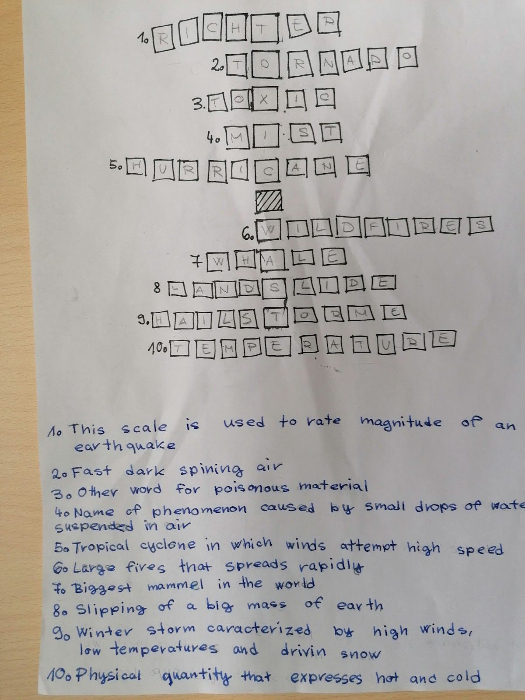 1. RICHTER
2. TORNADO
3. TOXIC
4. MIST
5. HURRICANE
6. WILDFIRES
7 WHALE
8 LANDSLIDE
9. HAILSTORME
10. TEMPERATURE
1. This scale is used to rate magnitude of an
earthquake
2. Fast dark spining air
3. Other word for poisonous material
4. Name of phenomenon caused by small drops of wate
suspended in air
5. Tropical cyclone in which winds attempt high speed
6. Large fires that spreads rapidly
7. Biggest mammel in the world
8. Slipping of a big mass of earth
9. Winter storm caracterized by high winds,
low temperatures and drivin snow
10. Physical quantity that expresses hot and cold